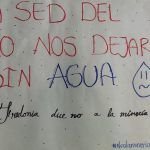 SED DEL
O NOS DEJAR
SIN AGUA
Fredonia dice no a la minería